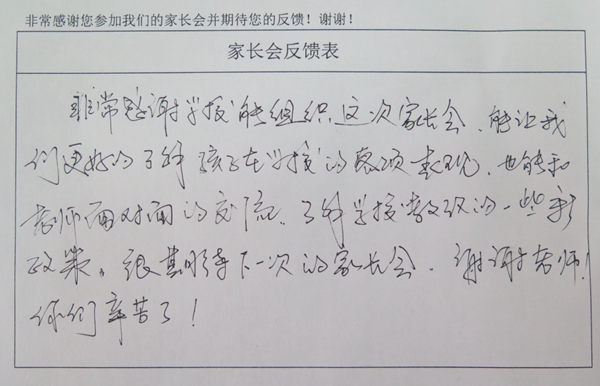 非常感谢您参加我们的家长会并期待您的反馈！谢谢！
家长会反馈表
非常感谢学校能组织这次家长会、能让我
们更好的了解孩子在学校的各项表现、也能和
老师面对面的交流、了解学校教改的一些新
政策。很期待下一次的家长会、谢谢老师！
你们辛苦了！